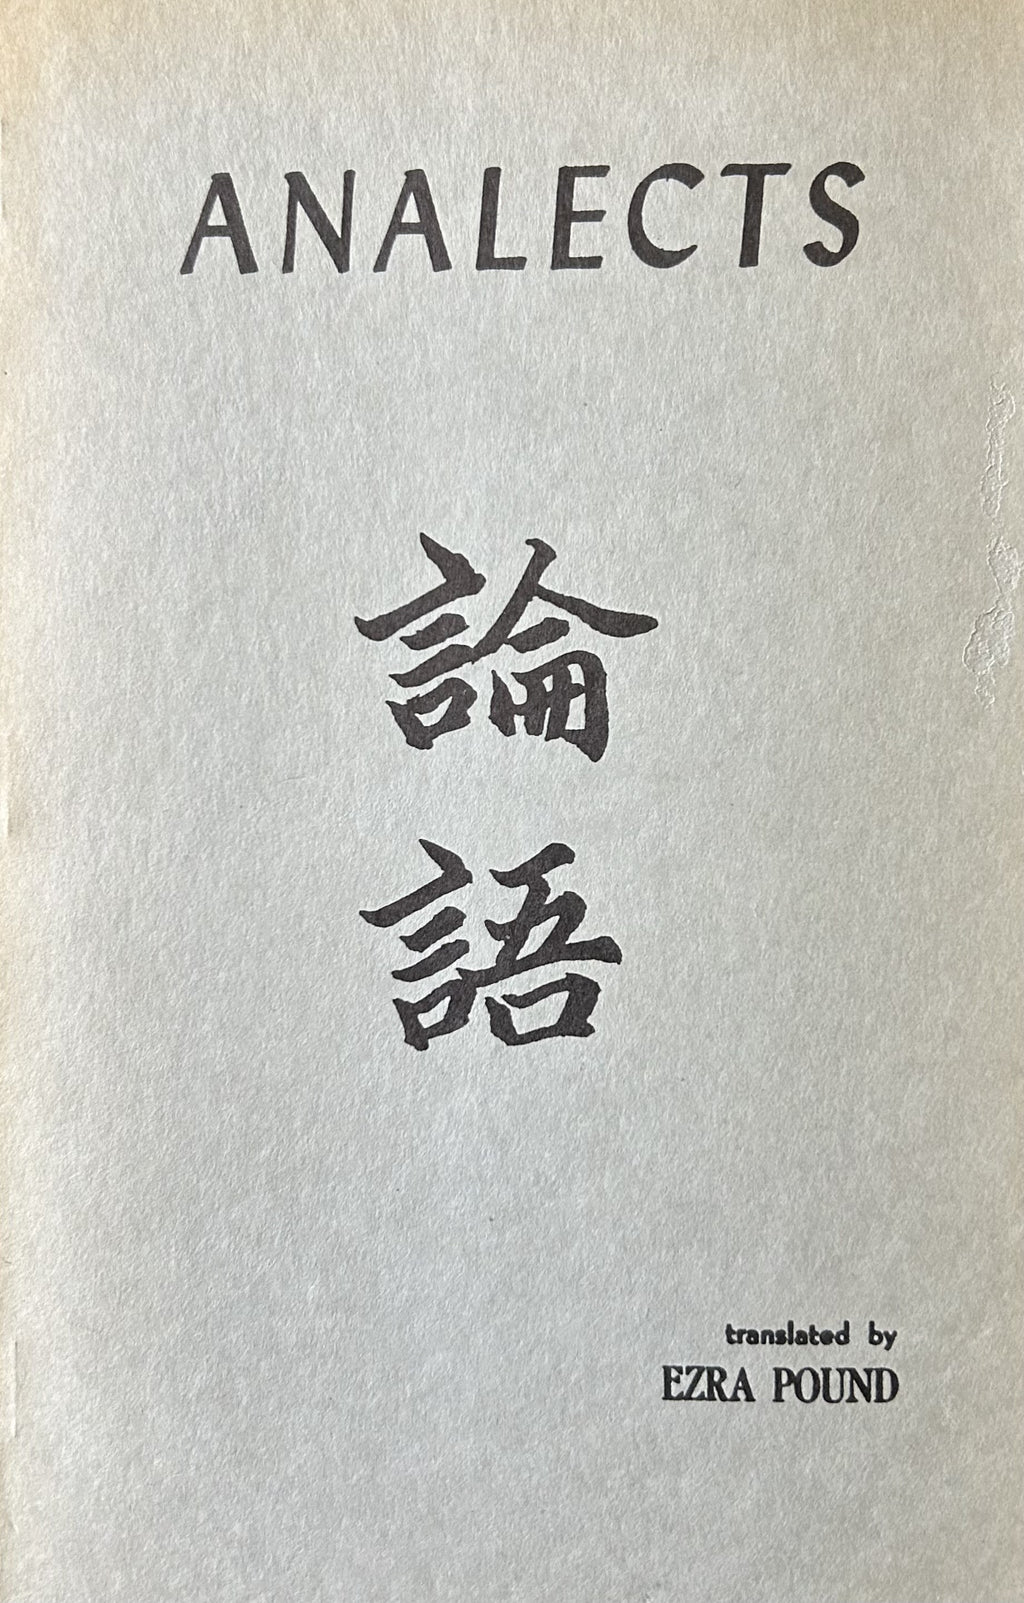 ANALECTS
論
語
translated by
EZRA POUND